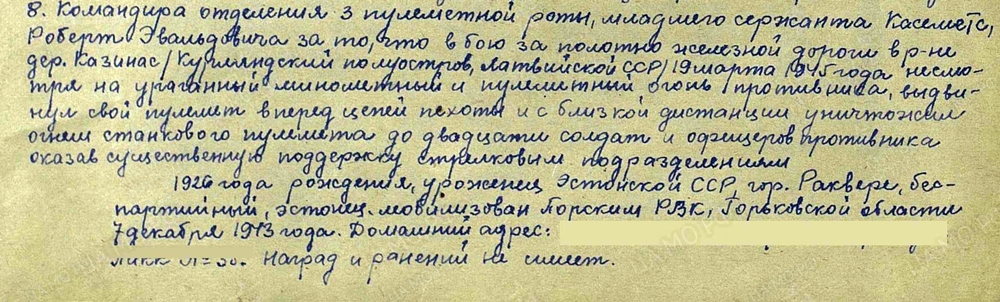 8. Командира отделения 3 пулеметной роты, младшего сержанта Касеметс,
Роберт Эвальдовича за то, что в бою за полотно железной дороги в р-не
дер. Казинас /Курляндский полуостров, Латвийской ССР/ 19 марта 1945 года несмо-
тря на ураганный минометный и пулеметный огонь противника, выдви-
нул свой пулемет вперед цепей пехоты и с близкой дистанции уничтожил
огнем станкового пулемета до двадцати солдат и офицеров противника
оказав существенную поддержку стрелковым подразделениям
1926 года рождения, уроженец Эстонской ССР, гор. Раквере, бес-
партийный, эстонец. мобилизован Горским РВК, Горьковской области
7 декабря 1943 года. Домашний адрес:
Наград и ранений не имеет.